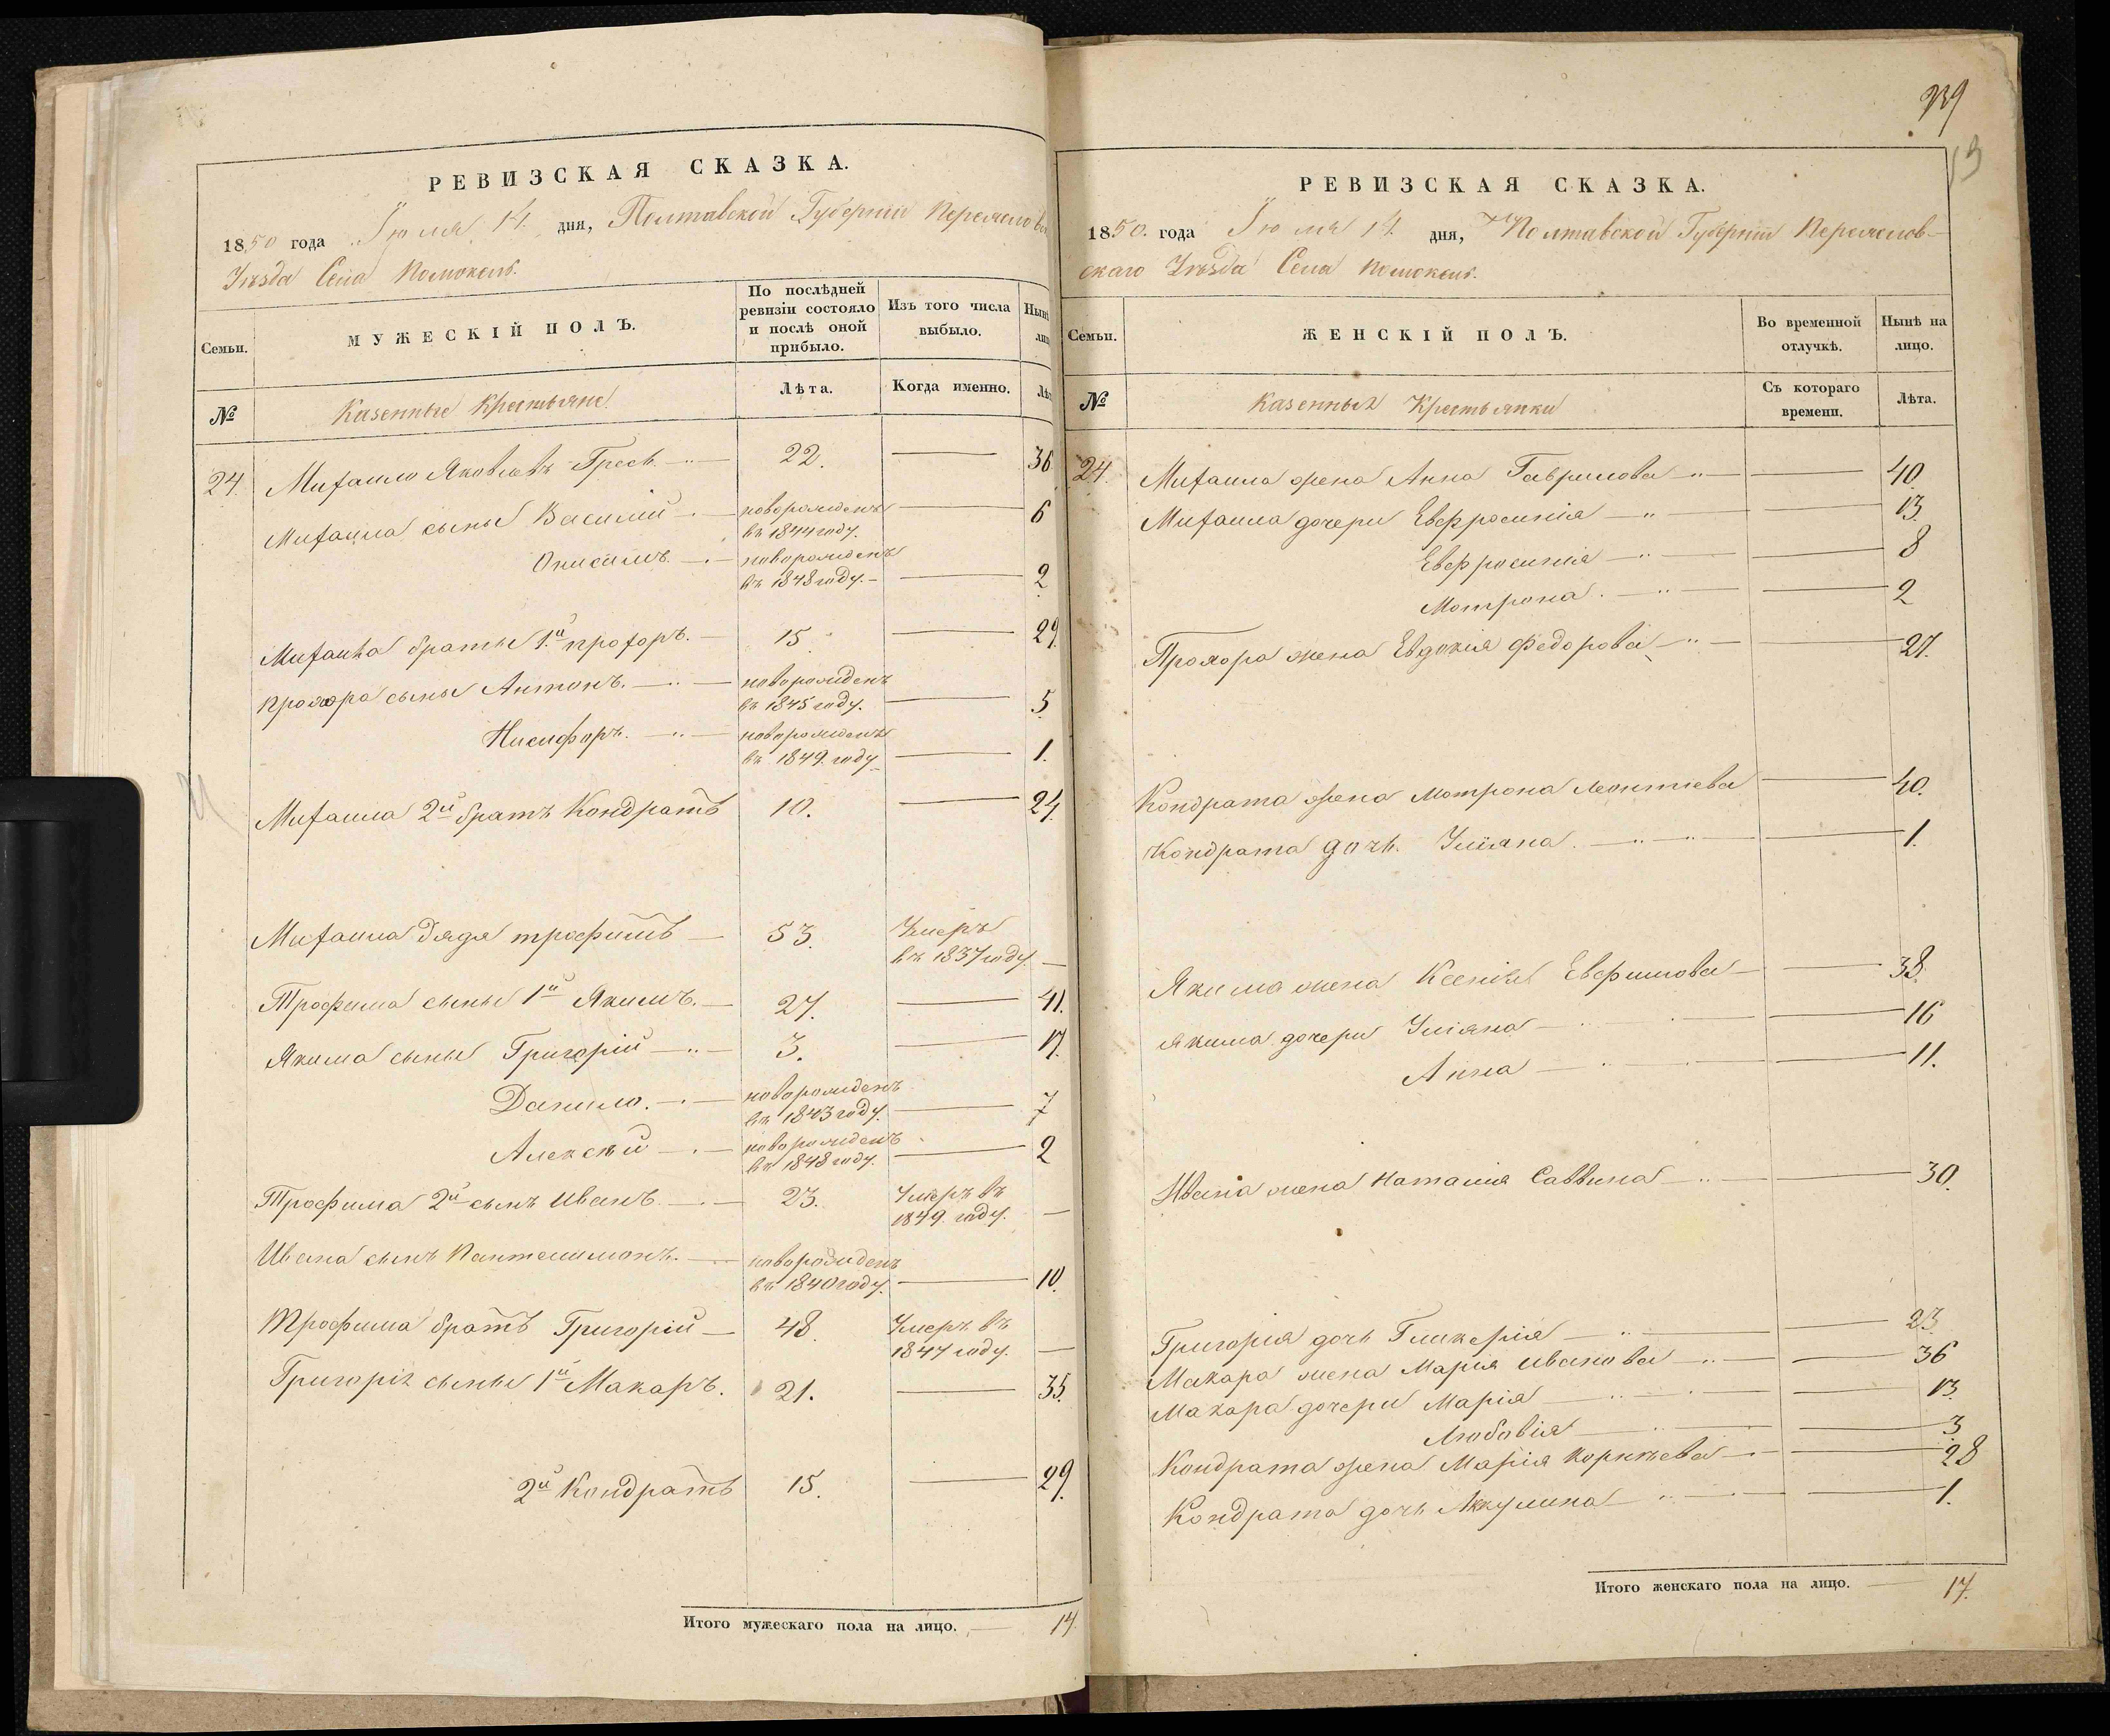 РЕВИЗСКАЯ СКАЗКА.
1850 года Іюля 14 дня, Полтавской Губерніи Переяслов
Уѣзда Села Помоклъ.
Семьи.
МУЖЕСКІЙ ПОЛЪ.
По послѣдней ревизіи состояло и послѣ оной прибыло.
Изъ того числа выбыло.
Нынѣ
лиц
№
Казенные Крестьяне
Лѣта.
Когда именно.
Лѣт
24. Михайло Яковлевъ Гресь 22. 36
Михаила сыны Василий новорожденъ въ 1844 году. 6
Онисимъ новорожденъ въ 1848 году. 2
Михаила братья 1й Прохоръ. 15 29.
Прохора сыны Антонъ. новорожденъ въ 1845 году. 5.
Никифоръ. новорожденъ въ 1849. году 1.
Михаила 2й братъ Кондратъ 10. 24.
Михаила дядя Трофимъ 53. Умеръ въ 1837 году.
Трофима сыны 1й Якимъ. 27. 41.
Якима сыны Григорій 3. 17.
Данило. новорожденъ въ 1843 году. 7
Алексѣй новорожденъ въ 1848 году. 2
Трофима 2й сынъ Иванъ. 23. Умеръ въ 1849. году.
Ивана сынъ Пантелимонъ. новорожденъ въ 1840 году. 10.
Трофима братъ Григорій 48. Умеръ въ 1847 году.
Григорія сыны 1й Макаръ. 21. 35.
2й Кондратъ 15. 29.
Итого мужескаго пола на лицо. 14.
239
13
РЕВИЗСКАЯ СКАЗКА.
1850. года Іюля 14. дня, Полтавской Губерніи Переяслов-
скаго Уѣзда Села Помоклъ.
Семьи.
ЖЕНСКІЙ ПОЛЪ.
Во временной отлучкѣ.
Нынѣ на лицо.
№
Казенныя Крестьянки
Съ котораго времени.
Лѣта.
24. Михаила жена Анна Гаврилова 40.
Михаила дочери Евфросинія 13.
Евфросинія 8
Мотрона. 2
Прохора жена Евдокія Федорова 27.
Кондрата жена Мотрона Леонтіева 40.
Кондрата дочь. Уліяна. 1.
Якима жена Ксенія Евфимова 38.
Якима дочери Уліяна 16
Анна 11.
Ивана жена Наталия Саввина 30.
Григорія дочь Гликерія 23
Макара жена Марія Иванова 36
Макара дочери Марія 13.
Любовія 3.
Кондрата жена Марія Корнѣева 28
Кондрата дочь Аккулина 1.
Итого женскаго пола на лицо. 17.